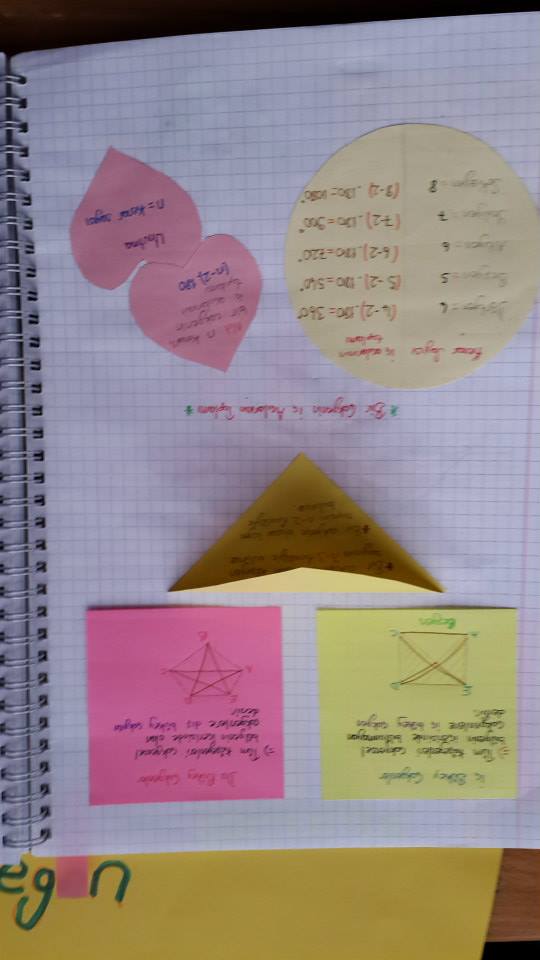 İç Bükey Çokgenler
») Tüm köşegenleri çokgensel
bölgenin içerisinde bulunmayan
çokgenlere iç bükey çokgen
denir.
E
D
A
C
Beşgen
Dış Bükey Çokgenler
») Tüm köşegenleri çokgensel
bölgenin içerisinde olan
çokgenlere dış bükey çokgen
denir
E
D
A
C
B
* Bir Çokgenin İç Açılarının Toplamı *
Kenar Sayısı
İç açılarının
toplamı
Dörtgen = 4
(4-2).180=360°
Beşgen = 5
(5-2).180=540°
Altıgen = 6
(6-2).180=720°
Yedigen = 7
(7-2).180=900°
Sekizgen = 8
(8-2).180=1080°
Not: n kenarlı
bir çokgenin
iç açılarının
toplamı
(n-2).180
Unutma
n = kenar sayısı